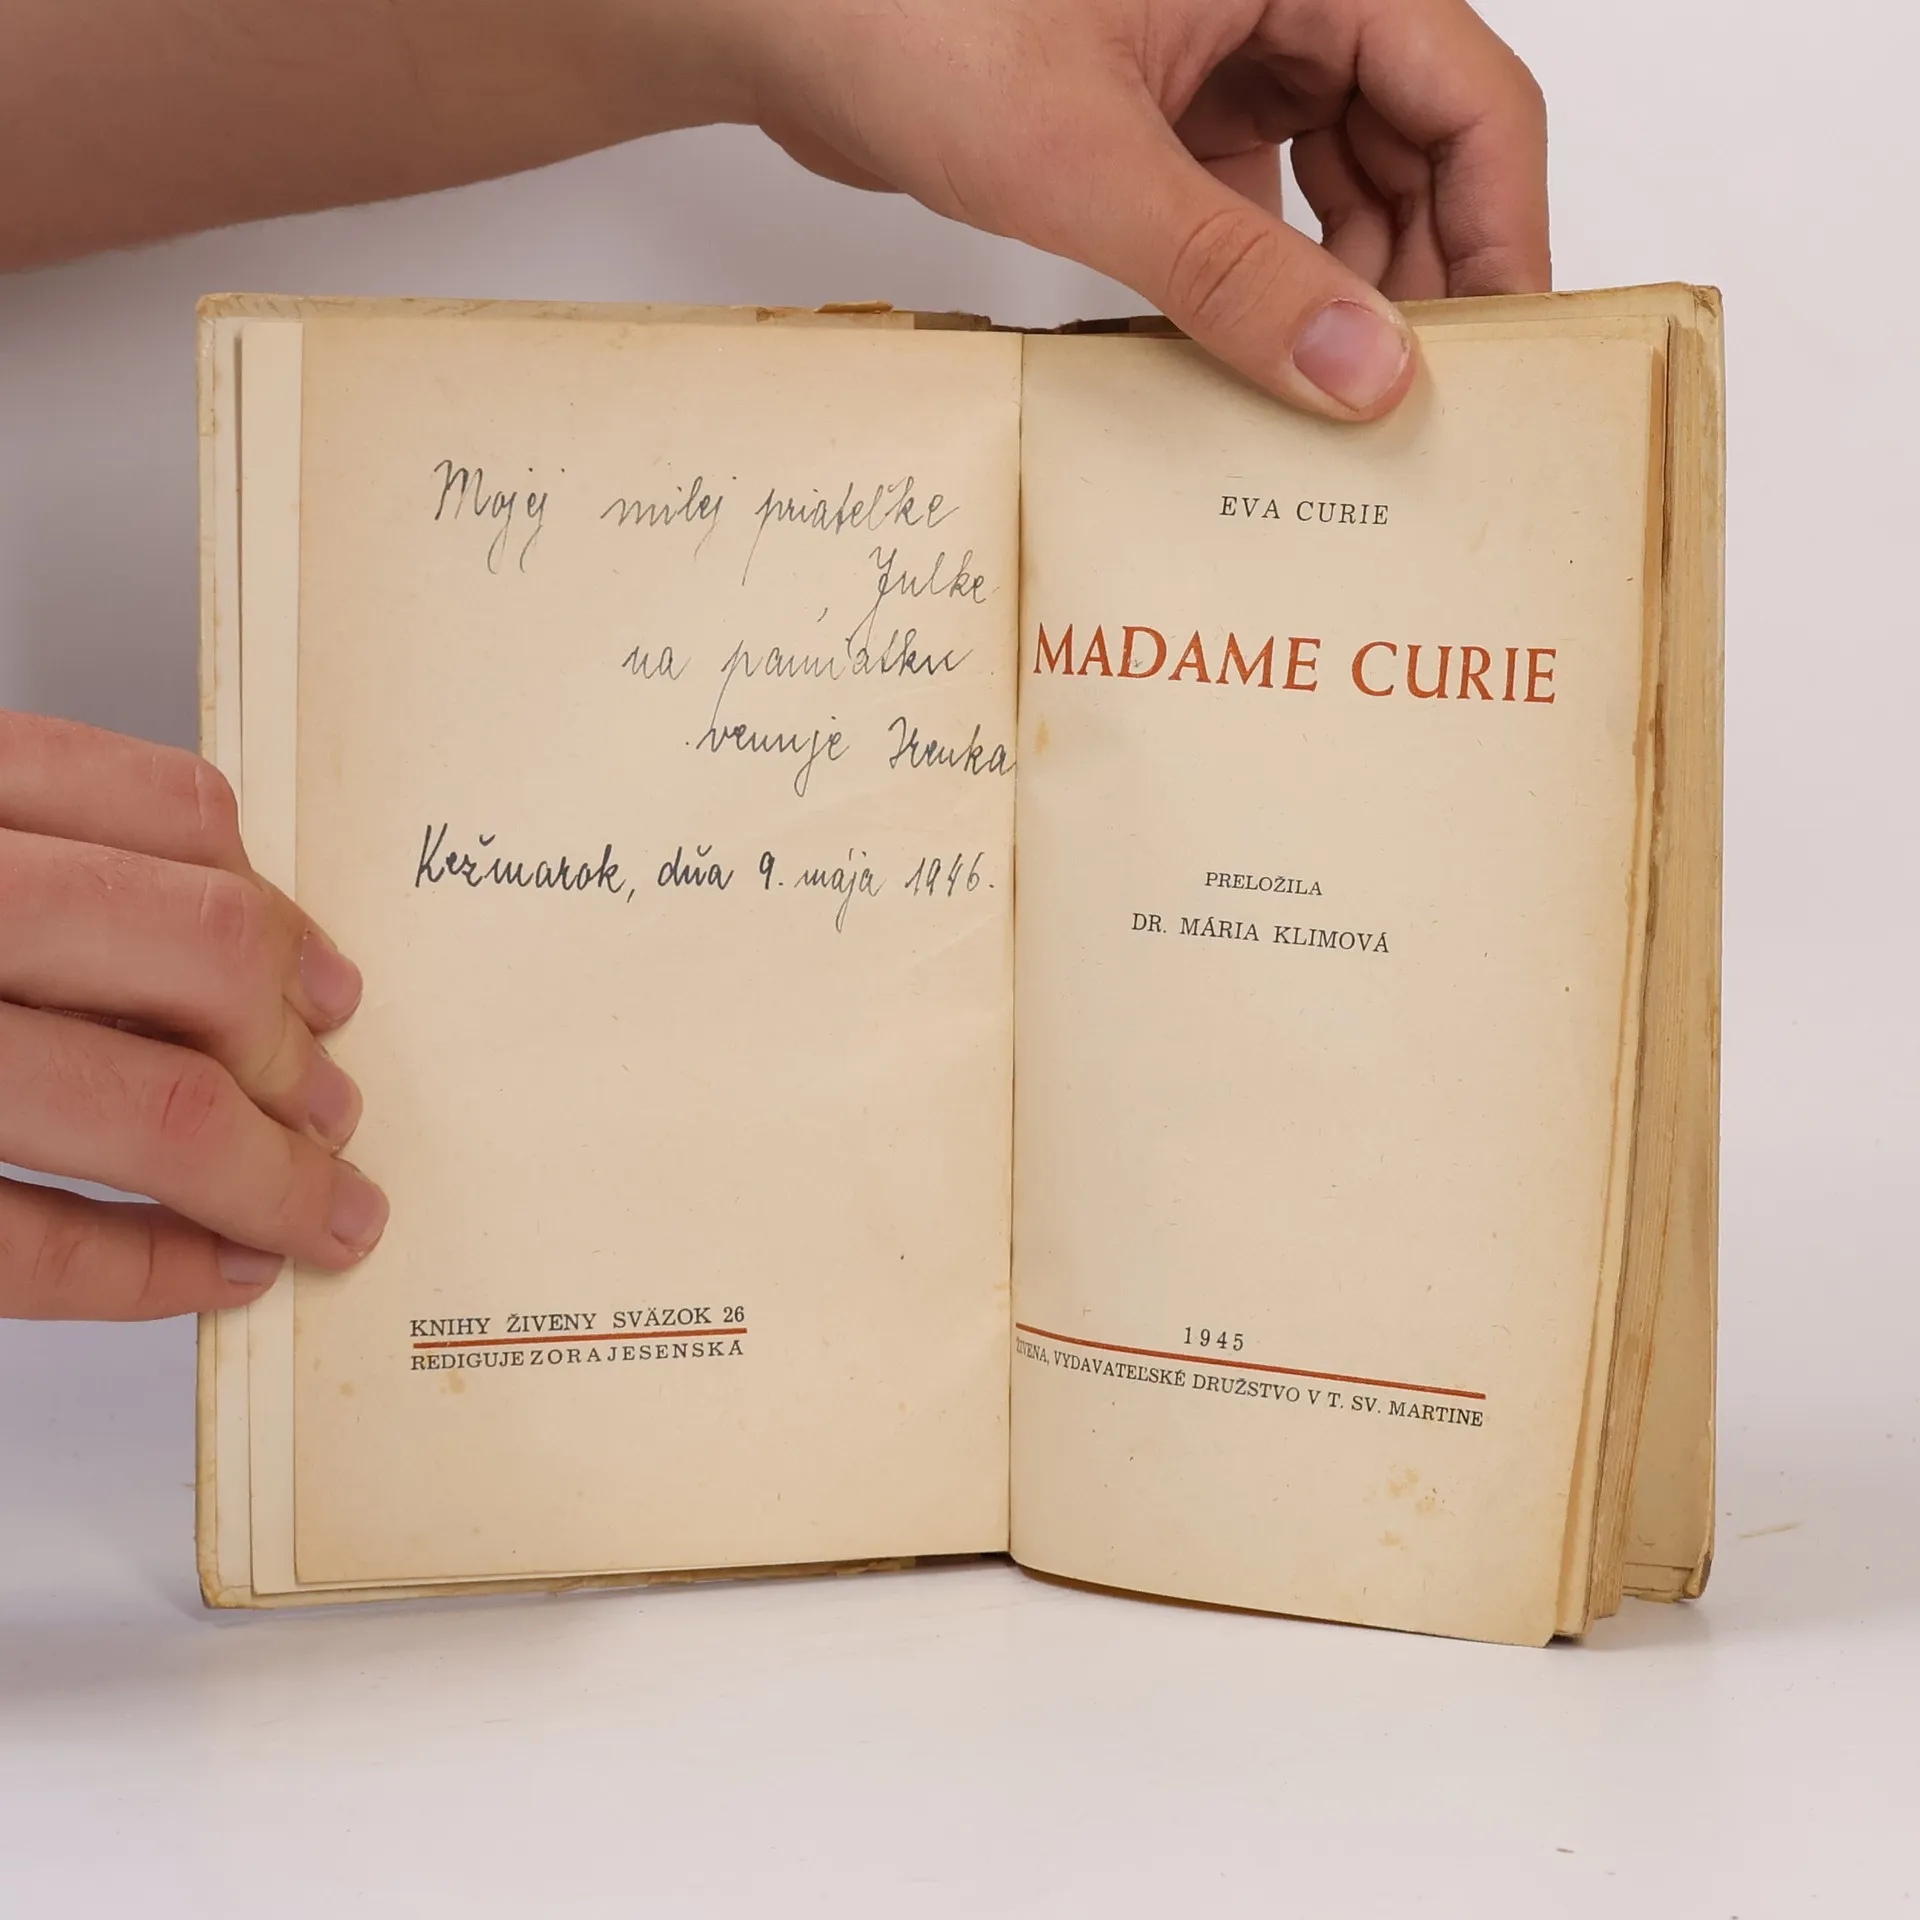 Mojej milej priateľke
Julke
na pamiatku
venuje Irenka
Kežmarok, dňa 9. mája 1946.
KNIHY ŽIVENY SVÄZOK 26
REDIGUJE ZORA JESENSKÁ
EVA CURIE
MADAME CURIE
PRELOŽILA
DR. MÁRIA KLIMOVÁ
1945
ŽIVENA, VYDAVATEĽSKÉ DRUŽSTVO V T. SV. MARTINE